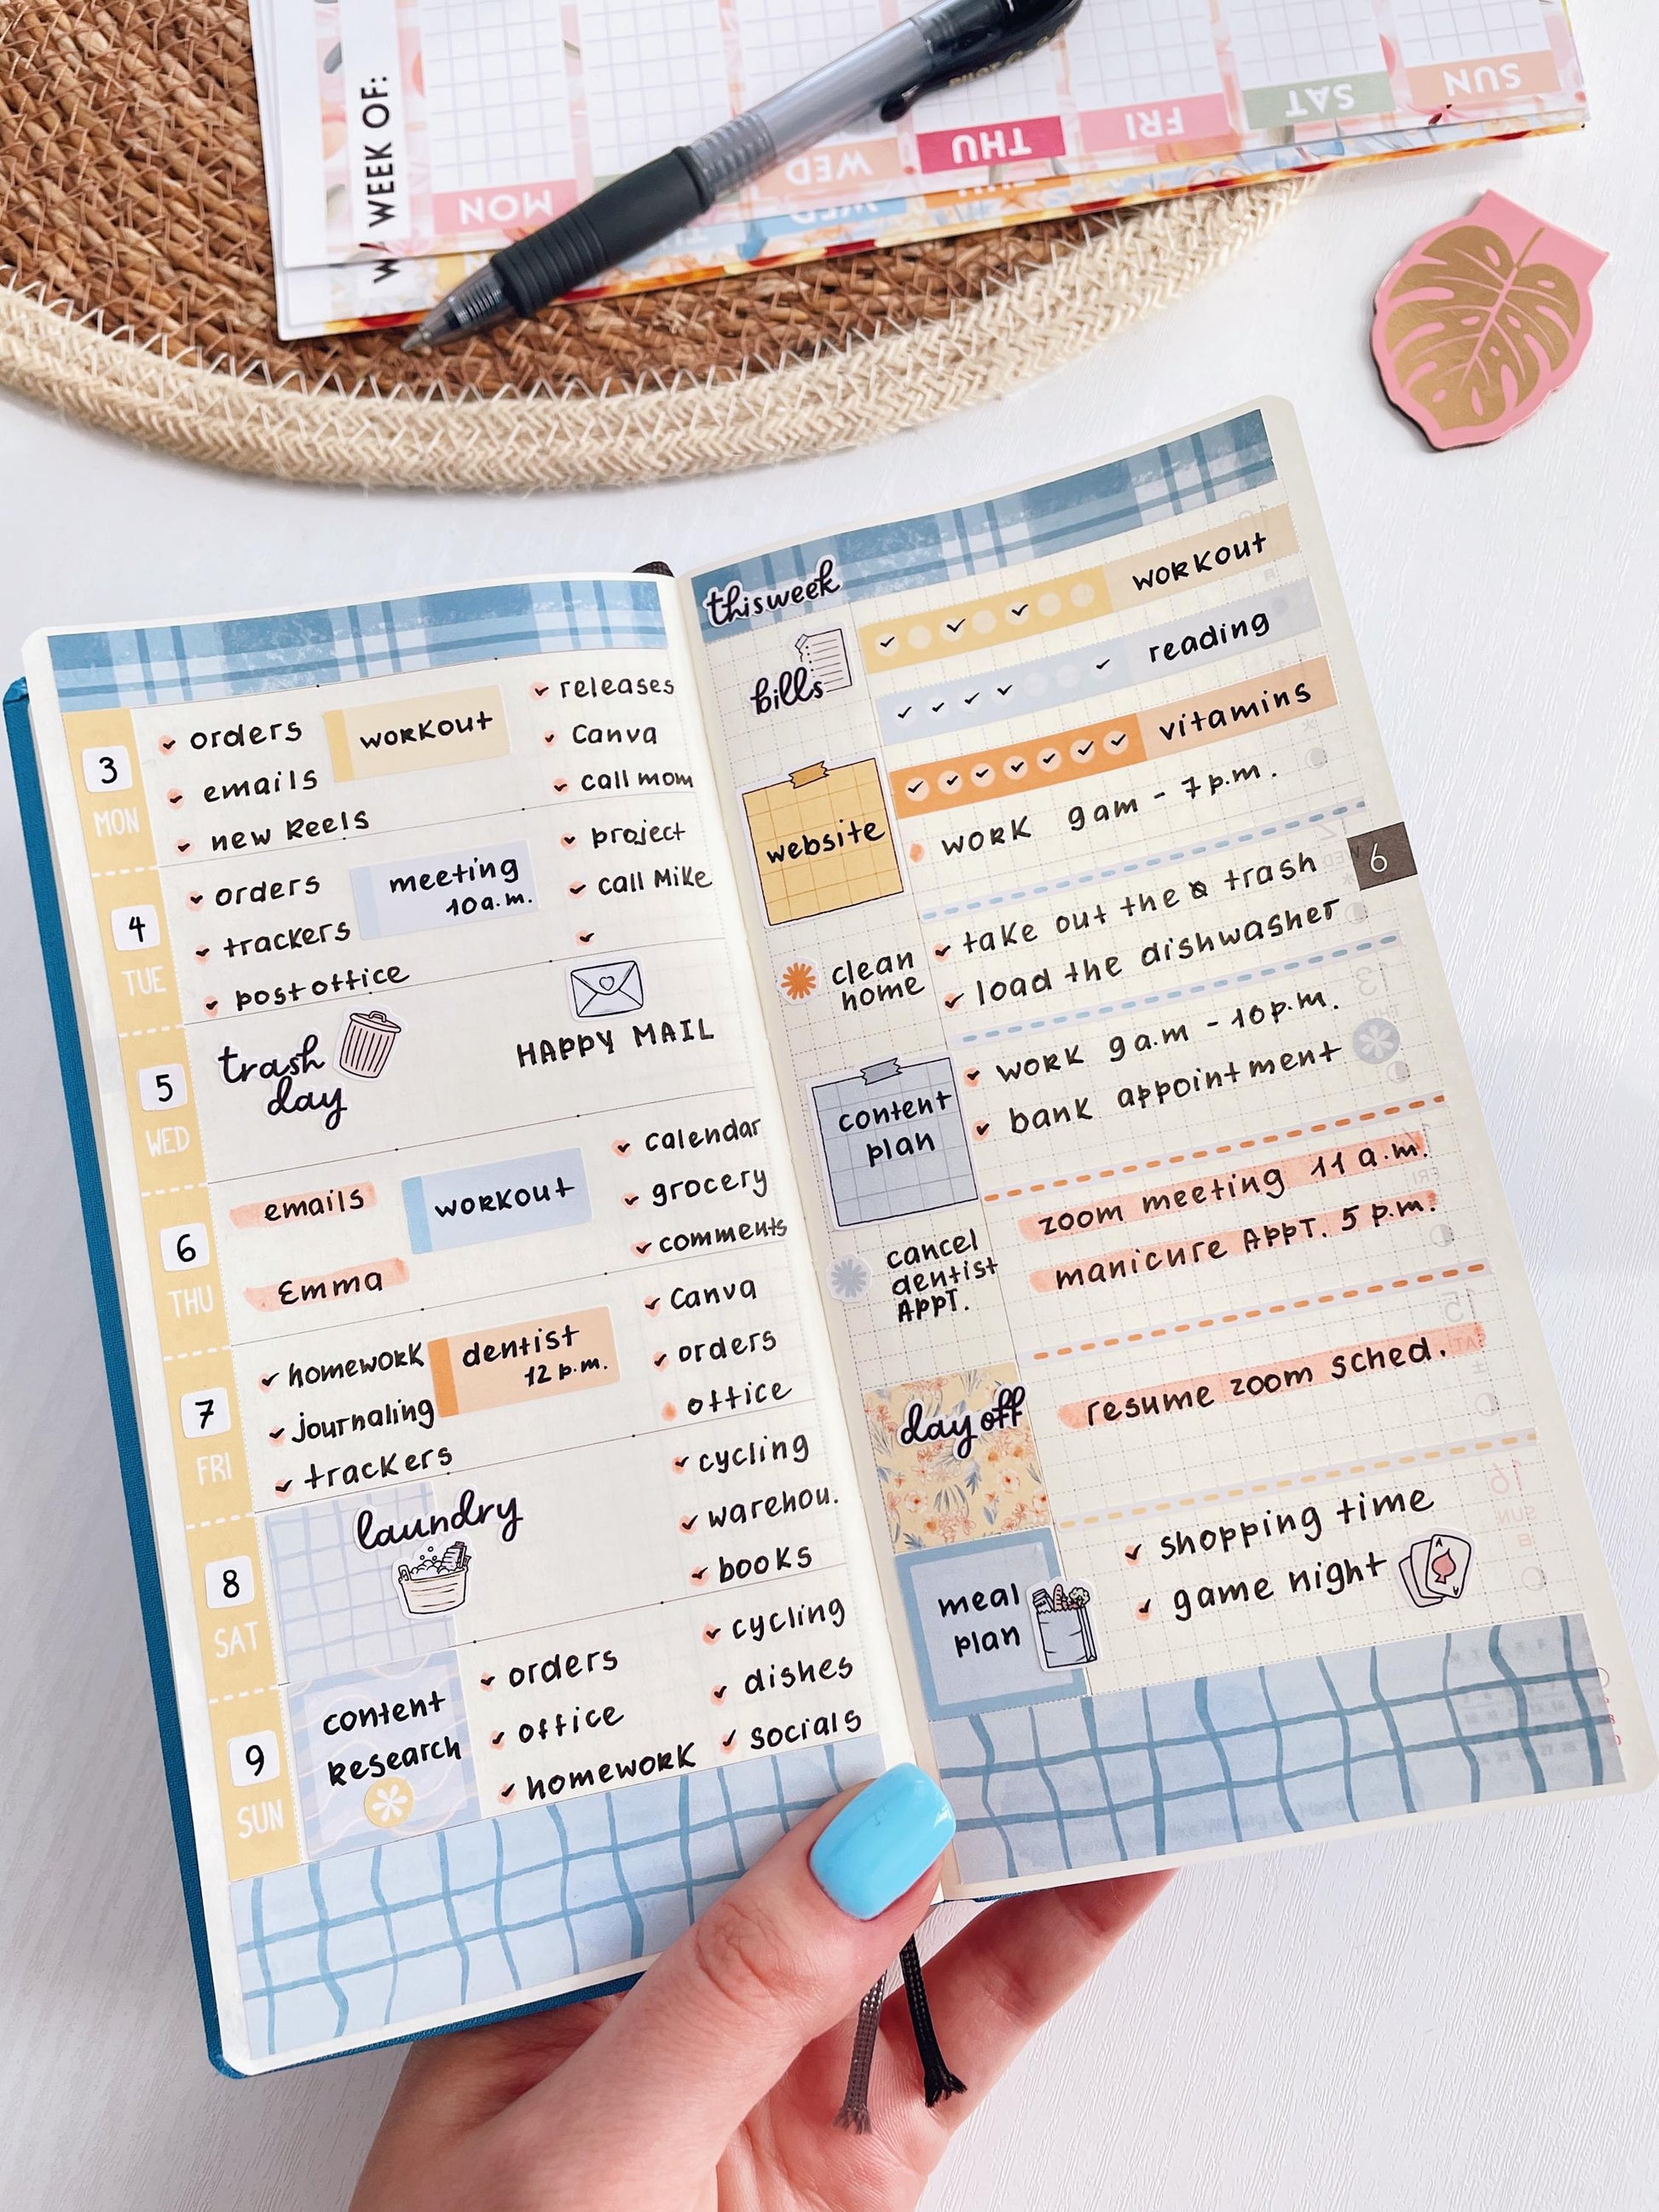 WEEK OF:
MON
WED
THU
FRI
SAT
SUN
WED
3
MON
orders
emails
new Reels
workout
releases
Canva
call mom
4
TUE
orders
trackers
post office
meeting
10 a.m.
project
call Mike
5
WED
trash
day
HAPPY MAIL
6
THU
emails
Emma
workout
calendar
grocery
comments
7
FRI
homework
journaling
trackers
dentist
12 p.m.
Canva
orders
office
8
SAT
laundry
cycling
warehou.
books
9
SUN
content
research
orders
office
homework
cycling
dishes
socials
this week
bills
workout
reading
vitamins
website
work 9am - 7p.m.
6
clean
home
take out the trash
load the dishwasher
content
plan
work 9a.m - 10p.m.
bank appointment
cancel
dentist
APPT.
zoom meeting 11 a.m.
manicure APPT. 5 p.m.
day off
resume zoom sched.
meal
plan
shopping time
game night
A